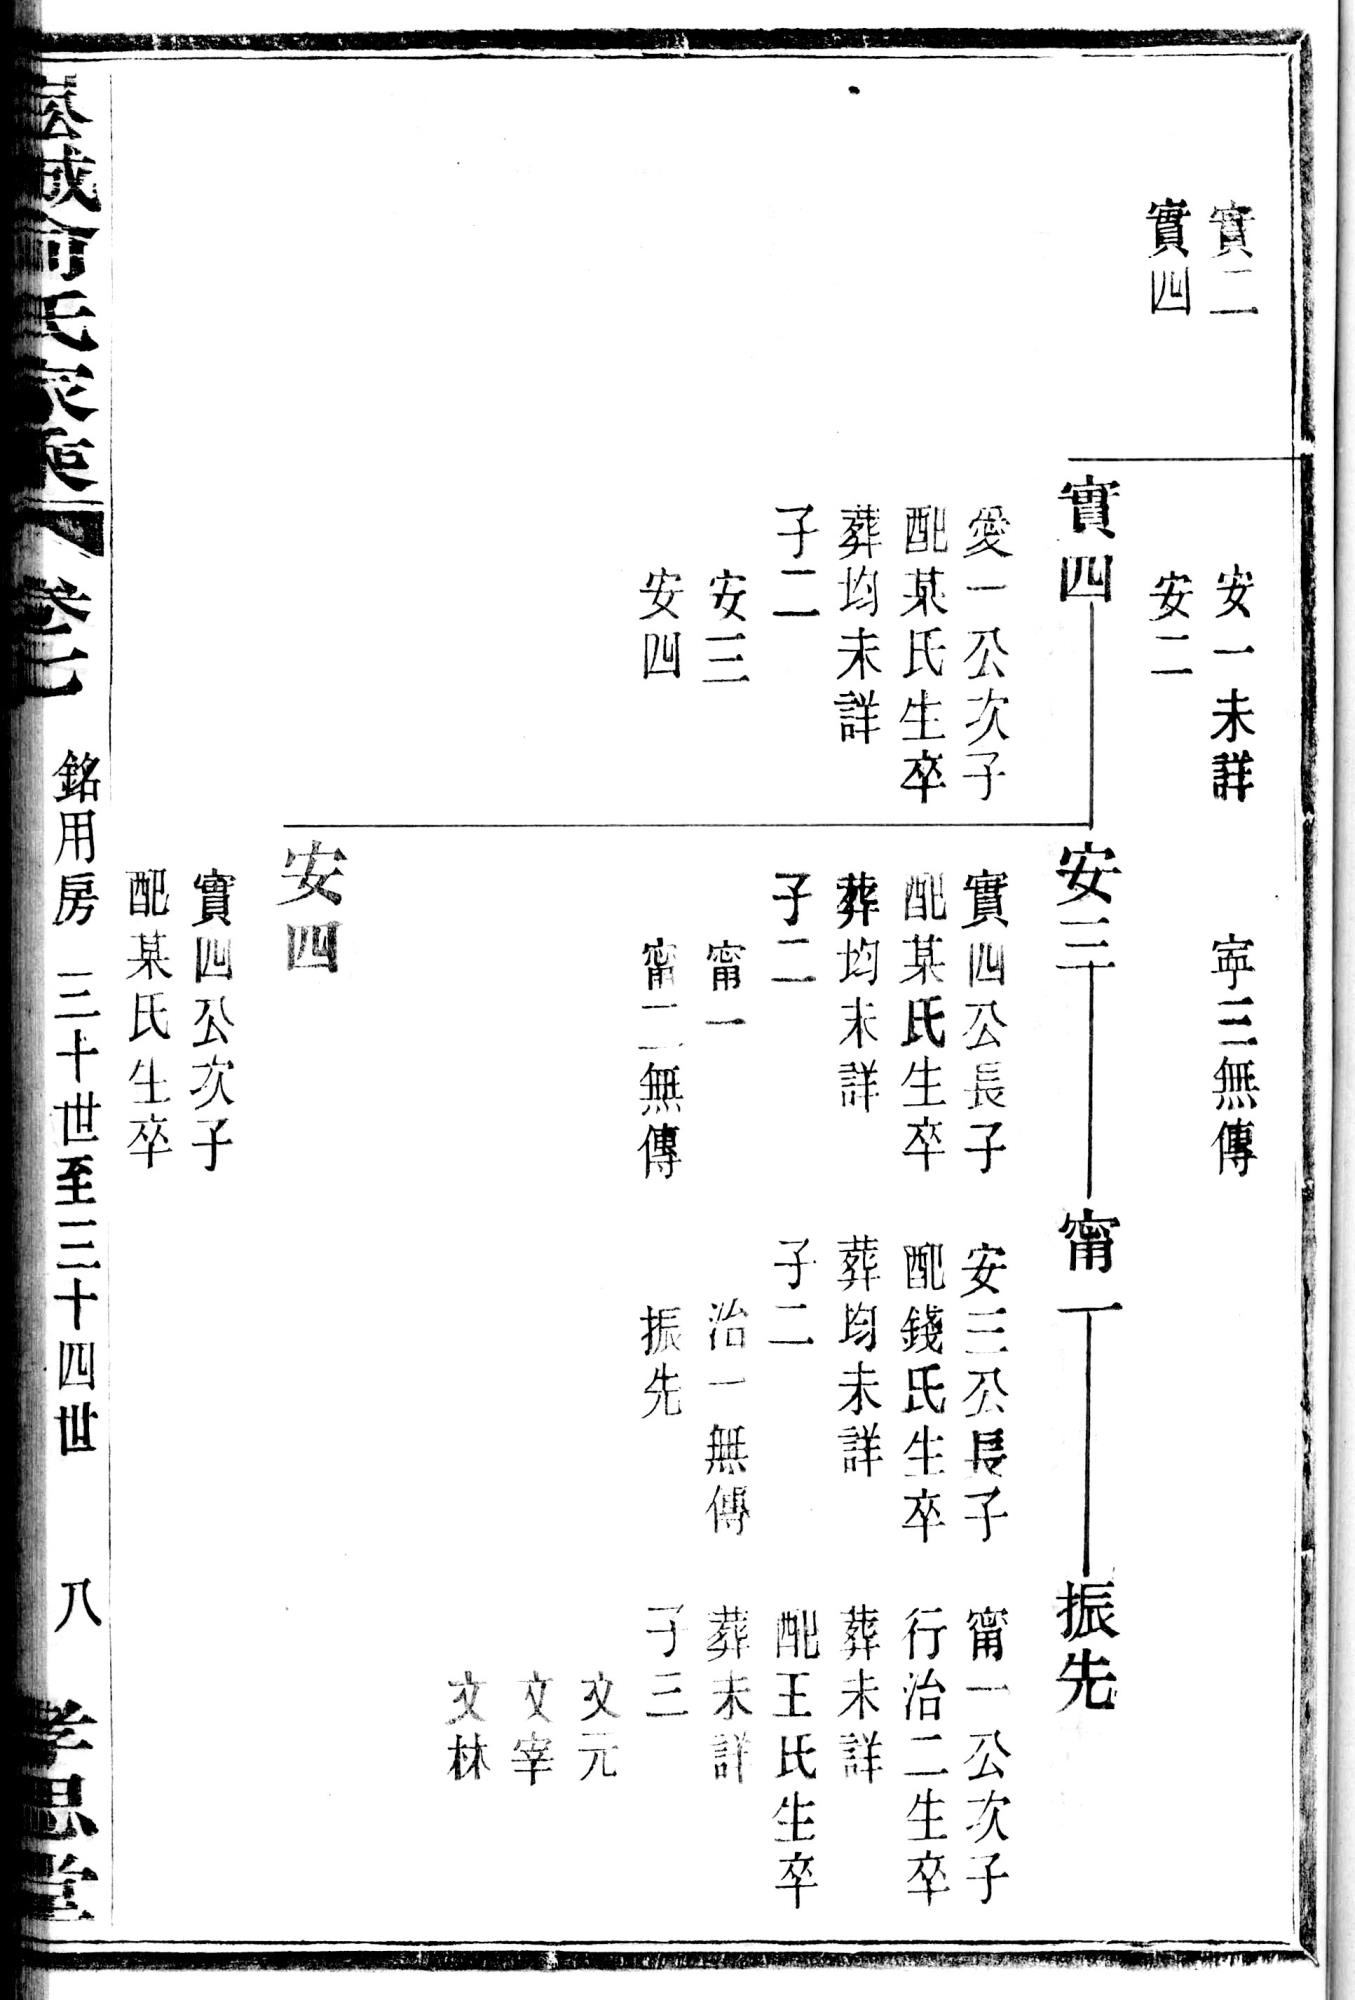 實二
實四
安一未詳
安二
寕三無傳
實四
愛一公次子
配某氏生卒
葬均未詳
子二
安三
安四
安三
實四公長子
配某氏生卒
葬均未詳
子二
甯一
甯二無傳
甯一
安三公長子
配錢氏生卒
葬均未詳
子二
治一無傳
振先
振先
甯一公次子
行治二生卒
葬未詳
配王氏生卒
葬未詳
子三
文元
文宰
文林
安四
實四公次子
配某氏生卒
俞氏家乘
卷七
銘用房 三十世至三十四世
八
孝思堂